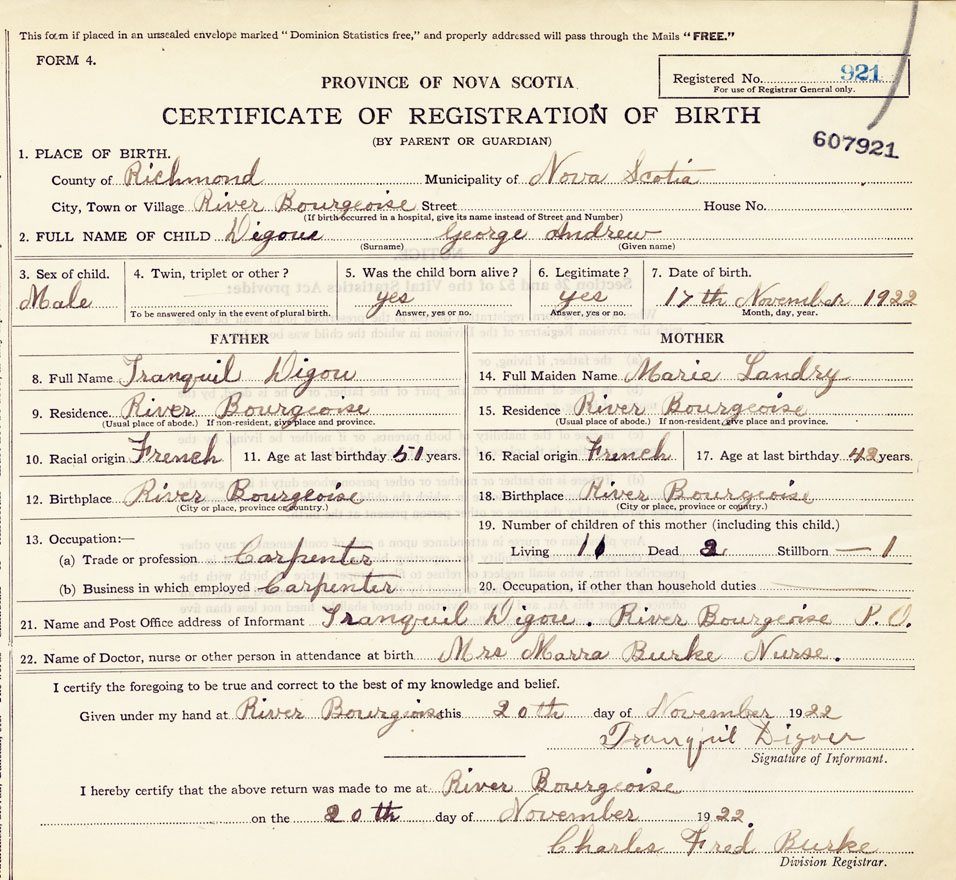 This form if placed in an unsealed envelope marked "Dominion Statistics free," and properly addressed will pass through the Mails "FREE."
FORM 4.
PROVINCE OF NOVA SCOTIA
Registered No. 921
For use of Registrar General only.
CERTIFICATE OF REGISTRATION OF BIRTH
(BY PARENT OR GUARDIAN)
607921
1. PLACE OF BIRTH.
County of Richmond Municipality of Nova Scotia
City, Town or Village River Bourgeoise Street House No.
(If birth occurred in a hospital, give its name instead of Street and Number)
2. FULL NAME OF CHILD Digoue George Andrew
(Surname) (Given name)
3. Sex of child. 4. Twin, triplet or other? 5. Was the child born alive? 6. Legitimate? 7. Date of birth.
Male yes yes 17th November 1922
To be answered only in the event of plural birth. Answer, yes or no. Answer, yes or no. Month, day, year.
FATHER MOTHER
8. Full Name Tranquil Digou 14. Full Maiden Name Marie Landry
9. Residence River Bourgeoise 15. Residence River Bourgeoise
(Usual place of abode.) If non-resident, give place and province. (Usual place of abode.) If non-resident, give place and province.
10. Racial origin French 11. Age at last birthday 51 years. 16. Racial origin French 17. Age at last birthday 42 years.
12. Birthplace River Bourgeoise 18. Birthplace River Bourgeoise
(City or place, province or country.) (City or place, province or country.)
13. Occupation:— 19. Number of children of this mother (including this child.)
(a) Trade or profession Carpenter Living 11 Dead 2 Stillborn — 1
(b) Business in which employed Carpenter 20. Occupation, if other than household duties
21. Name and Post Office address of Informant Tranquil Digou. River Bourgeoise P. O.
22. Name of Doctor, nurse or other person in attendance at birth Mrs Marra Burke Nurse.
I certify the foregoing to be true and correct to the best of my knowledge and belief.
Given under my hand at River Bourgoise this 20th day of November 1922
Tranquil Digour
Signature of Informant.
I hereby certify that the above return was made to me at River Bourgeoise
on the 20th day of November 1922.
Charles Fred Burke
Division Registrar.